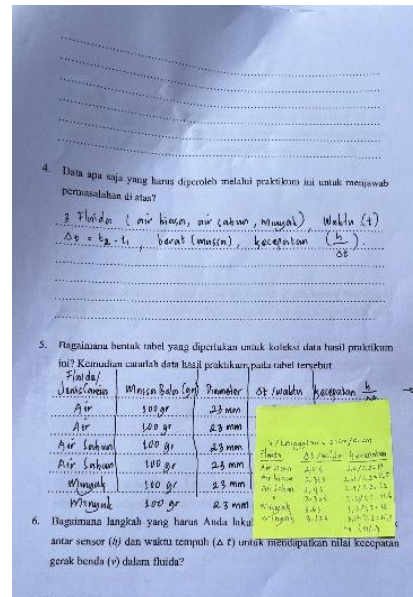 4. Data apa saja yang harus diperoleh melalui praktikum ini untuk menjawab
permasalahan di atas?
3 Fluida (air biasa, air sabun, minyak), Waktu (t)
Δt = t2 - t1, berat (massa), kecepatan (h/Δt).
5. Bagaimana bentuk tabel yang diperlukan untuk koleksi data hasil praktikum
ini? Kemudian catatlah data hasil praktikum pada tabel tersebut
Fluida/
Jenis Cairan Massa Bola (gr) Diameter Δt/waktu kecepatan h
Air 100 gr 23 mm
Air 100 gr 23 mm
Air Sabun 100 gr 23 mm
Air Sabun 100 gr 23 mm
Minyak 100 gr 23 mm
Minyak 100 gr 23 mm
Fluida Δt/waktu kecepatan
6. Bagaimana langkah yang harus Anda laku
antar sensor (h) dan waktu tempuh (Δ t) untuk mendapatkan nilai kecepatan
gerak benda (v) dalam fluida?